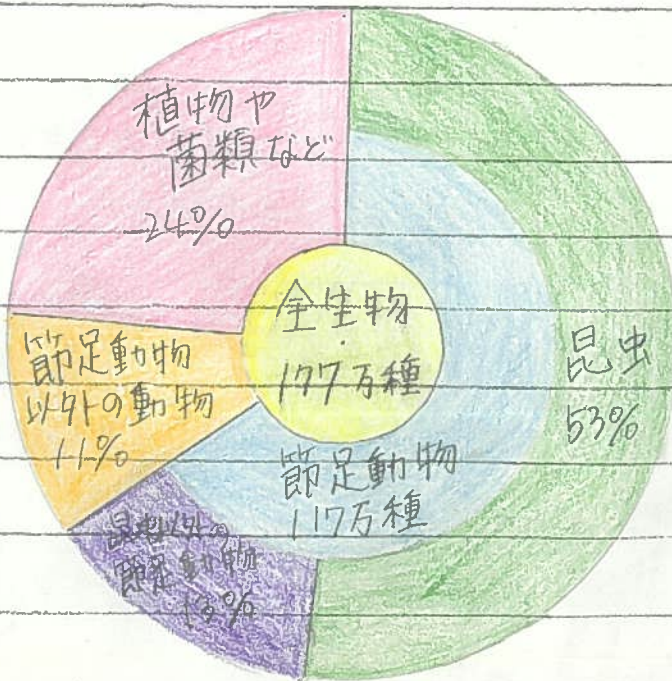 植物や
菌類など
24%
全生物
177万種
昆虫
53%
節足動物
以外の動物
11%
節足動物
117万種
昆虫以外の
節足動物
13%